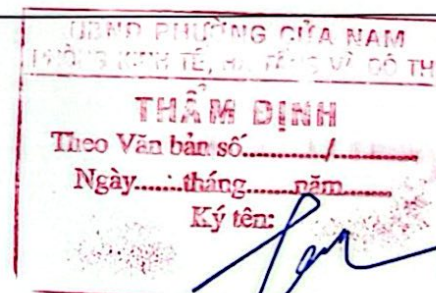 UBND PHƯỜNG CỬA NAM
PHÒNG KINH TẾ, HẠ TẦNG VÀ ĐÔ TH
THẨM ĐỊNH
Theo Văn bản số............/............
Ngày.......tháng.......năm.......
Ký tên: